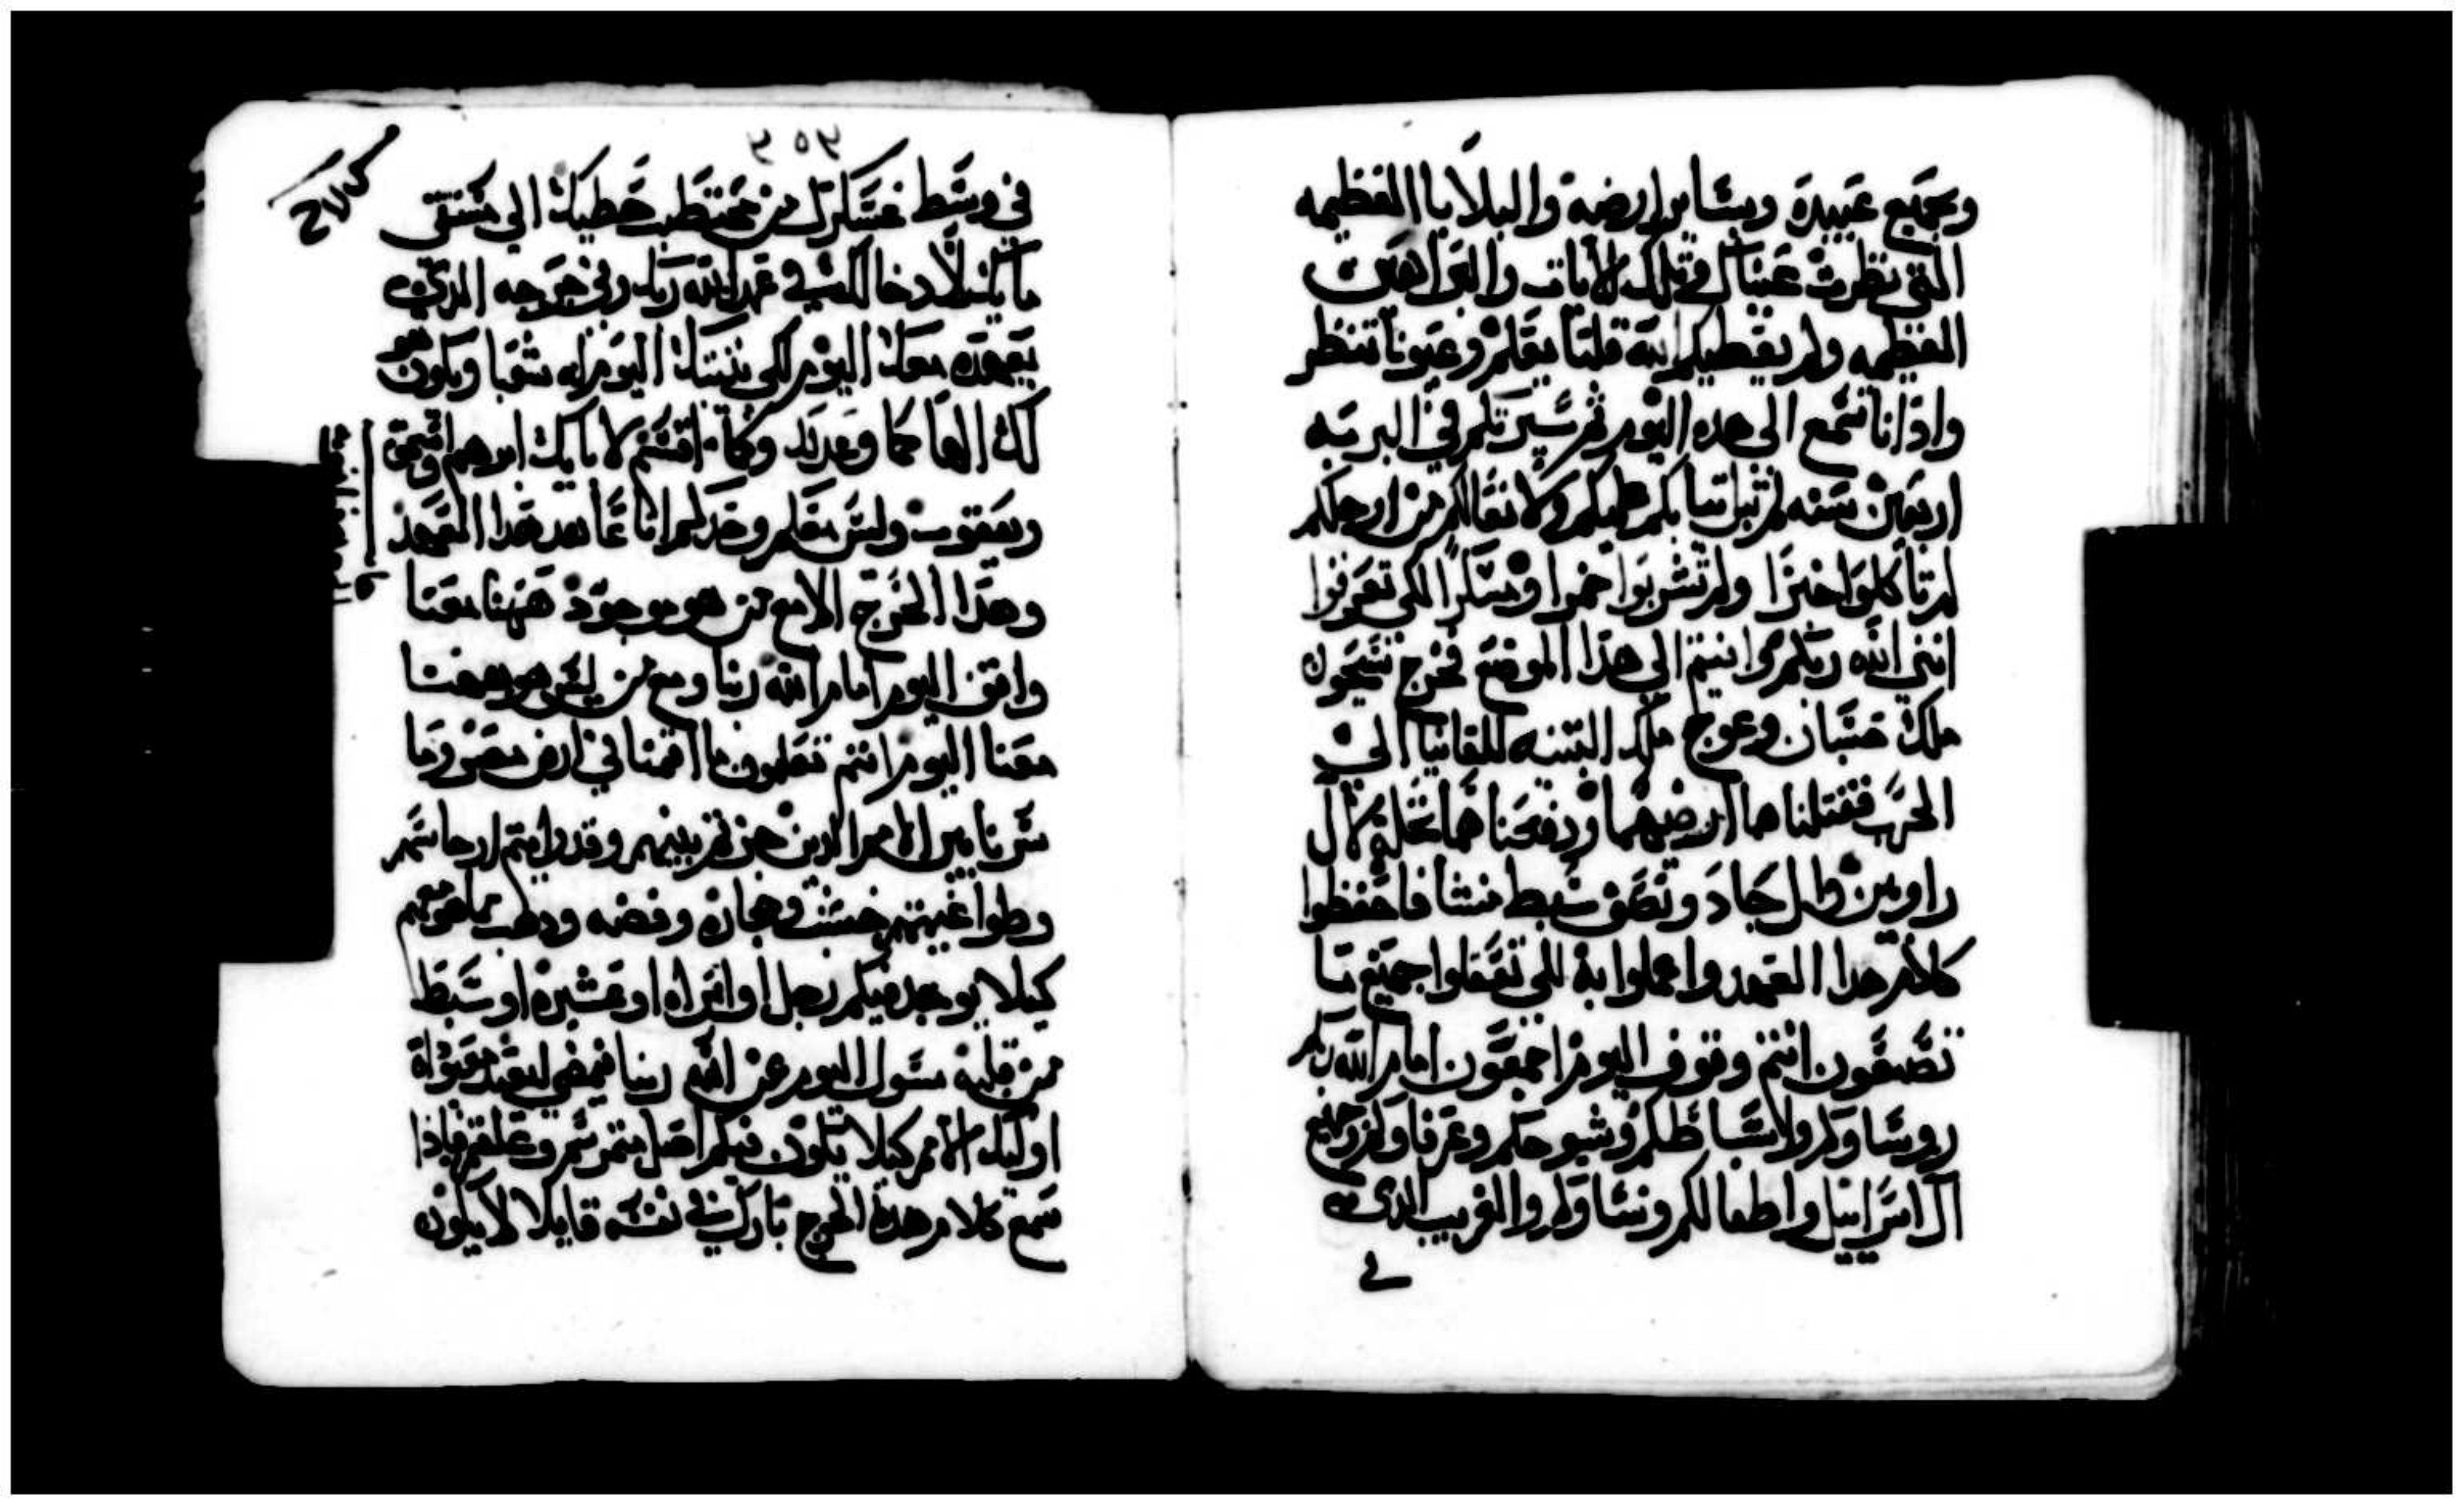 وبجميع عبيده وبسائر ارضه والبلايا العظيمه
التي نظرت عيناك في تلك الايات والبراهين
العظيمه ولم يعطيكم الله قلبا يعلم وعيونا تنظر
واذانا تسمع الى هده اليوم ثم سيرتكم في البريه
اربعين سنه لم تبل تيابكم عليكم ولا نعالكم من ارجلكم
لم تاكلوا خبزا ولم تشربوا خمرا ومسكرا لكي تعرفوا
انني الله ربكم وانيتم الى هذا الموضع فخرج سيحون
ملك حسبان وعوج ملك البتنيه للقانيا الى
الحرب فقتلناهما ارضيهما ودفعناها نحلة لال
راوبين وال جاد ونصف سبط منشا فاحفظوا
كلام هدا العهد واعملوا به لكي تعقلوا جميع ما
تصنعون انتم وقوف اليوم اجمعون امام الله ربكم
روساوكم ولاسباطكم وشيوخكم وعرفاوكم وجميع
ال اسراييل واطفالكم ونساوكم والغريب الدي
في
٣٥٣
في وسط عسكرك من محتطب حطبك الي مستقي
مايك لادخالك في عهد الله ربك وفي حرجه الدي
يعهده معك اليوم لكي يثبتك اليوم له شعبا ويكون هو
لك الها كما وعدك وكما اقسم لابايك ابرهيم واسحق
ويعقوب وليس معكم وحدكم انا عاهد هدا العهد
وهذا الحرج الا مع من هو موجود ههنا معنا
واقف اليوم امام الله ربنا ومع من ليس هو ههنا
معنا اليوم انتم تعلمون ما اقمنا في ارض مصر وما
سرنا بين الامم الذين جزتم بينهم وقد رايتم ارجاسهم
وطواغيتهم خشب وحجاره وفضه ودهب مما هو معهم
كيلا يوجد فيكم رجل او امراه او عشيره او سبط
من قلبه يتول اليوم عن الله ربنا فيمضي ليعبد معبوداة
اوليك الامم كيلا يكون فيكم اصل يتمر سم وعلقم فاذا
سمع كلام هده الحرج تبارك في نفسه قايلا لا يكون